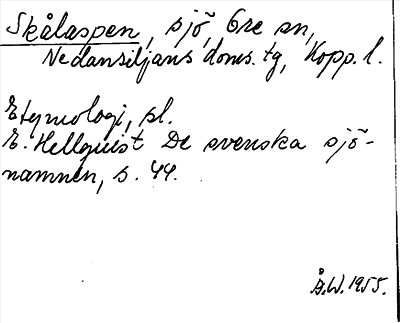 Skålaspen, sjö, Ore sn,
Nedansiljans doms. tg, Kopp. l.
Etymologi, pl.
E. Hellquist De svenska sjö-
namnen, s. 44.
Å.W. 1955.